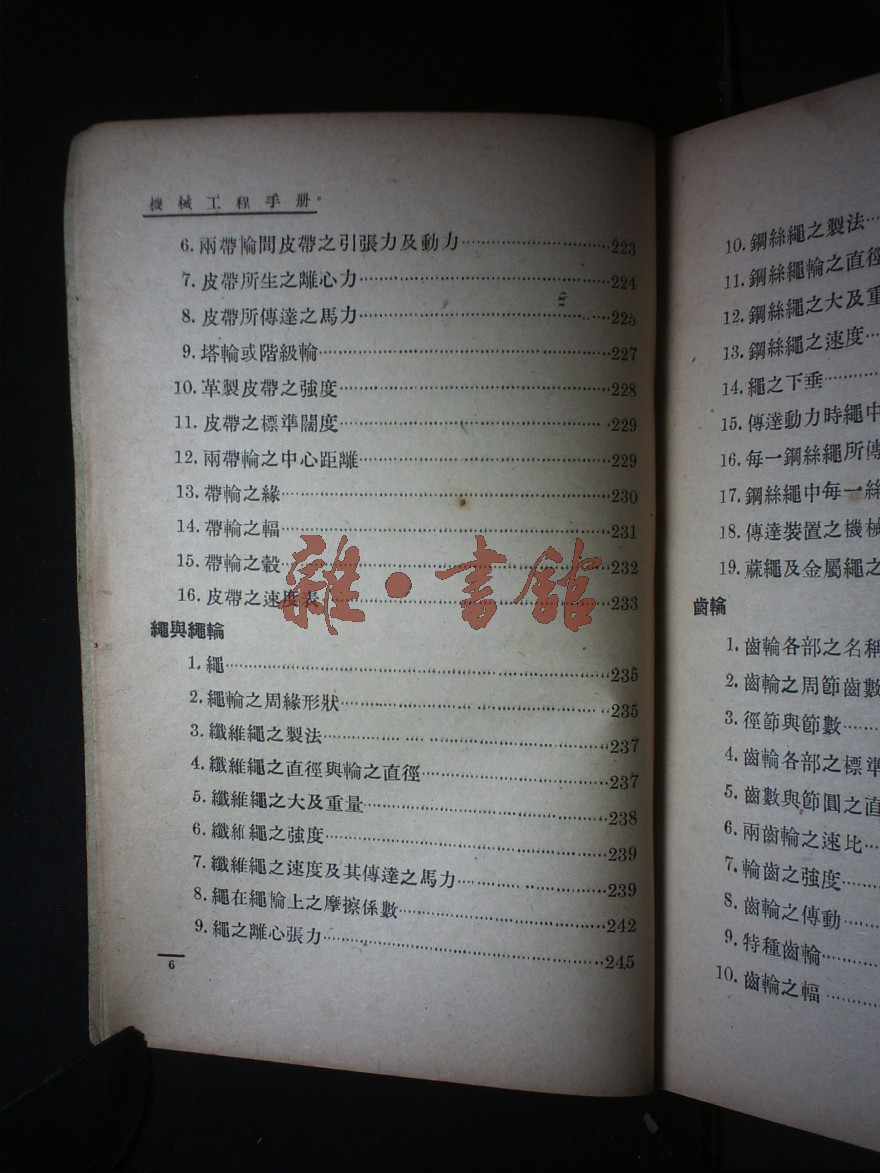 機械工程手册
6. 兩帶輪間皮帶之引張力及動力……223
7. 皮帶所生之離心力……224
8. 皮帶所傳達之馬力……225
9. 塔輪或階級輪……227
10. 革製皮帶之強度……228
11. 皮帶之標準闊度……229
12. 兩帶輪之中心距離……229
13. 帶輪之緣……230
14. 帶輪之輻……231
15. 帶輪之轂……232
16. 皮帶之速度表……233
繩與繩輪
1. 繩……235
2. 繩輪之周緣形狀……235
3. 纖維繩之製法……237
4. 纖維繩之直徑與輪之直徑……237
5. 纖維繩之大及重量……238
6. 纖維繩之強度……239
7. 纖維繩之速度及其傳達之馬力……239
8. 繩在繩輪上之摩擦係數……242
9. 繩之離心張力……245
6
10. 鋼絲繩之製法……
11. 鋼絲繩輪之直徑
12. 鋼絲繩之大及重
13. 鋼絲繩之速度……
14. 繩之下垂……
15. 傳達動力時繩中
16. 每一鋼絲繩所傳
17. 鋼絲繩中每一絲
18. 傳達裝置之機械
19. 蔴繩及金屬繩之
齒輪
1. 齒輪各部之名稱
2. 齒輪之周節齒數
3. 徑節與節數……
4. 齒輪各部之標準
5. 齒數與節圓之直
6. 兩齒輪之速比……
7. 輪齒之強度……
8. 齒輪之傳動……
9. 特種齒輪……
10. 齒輪之輻……
雜·書館